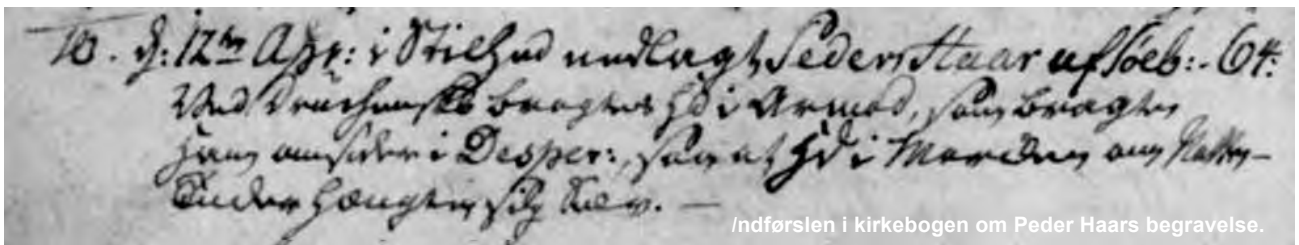 10. d: 12te Apr: i Stilhed nedlagt Peder Haar af Søeb: - 64:
Ved Druchenskb bragtes hd i Armod, som bragte
ham omsider i Desper:, saa at hd i Marden om Natten
hængte sig Selv. —
Indførslen i kirkebogen om Peder Haars begravelse.